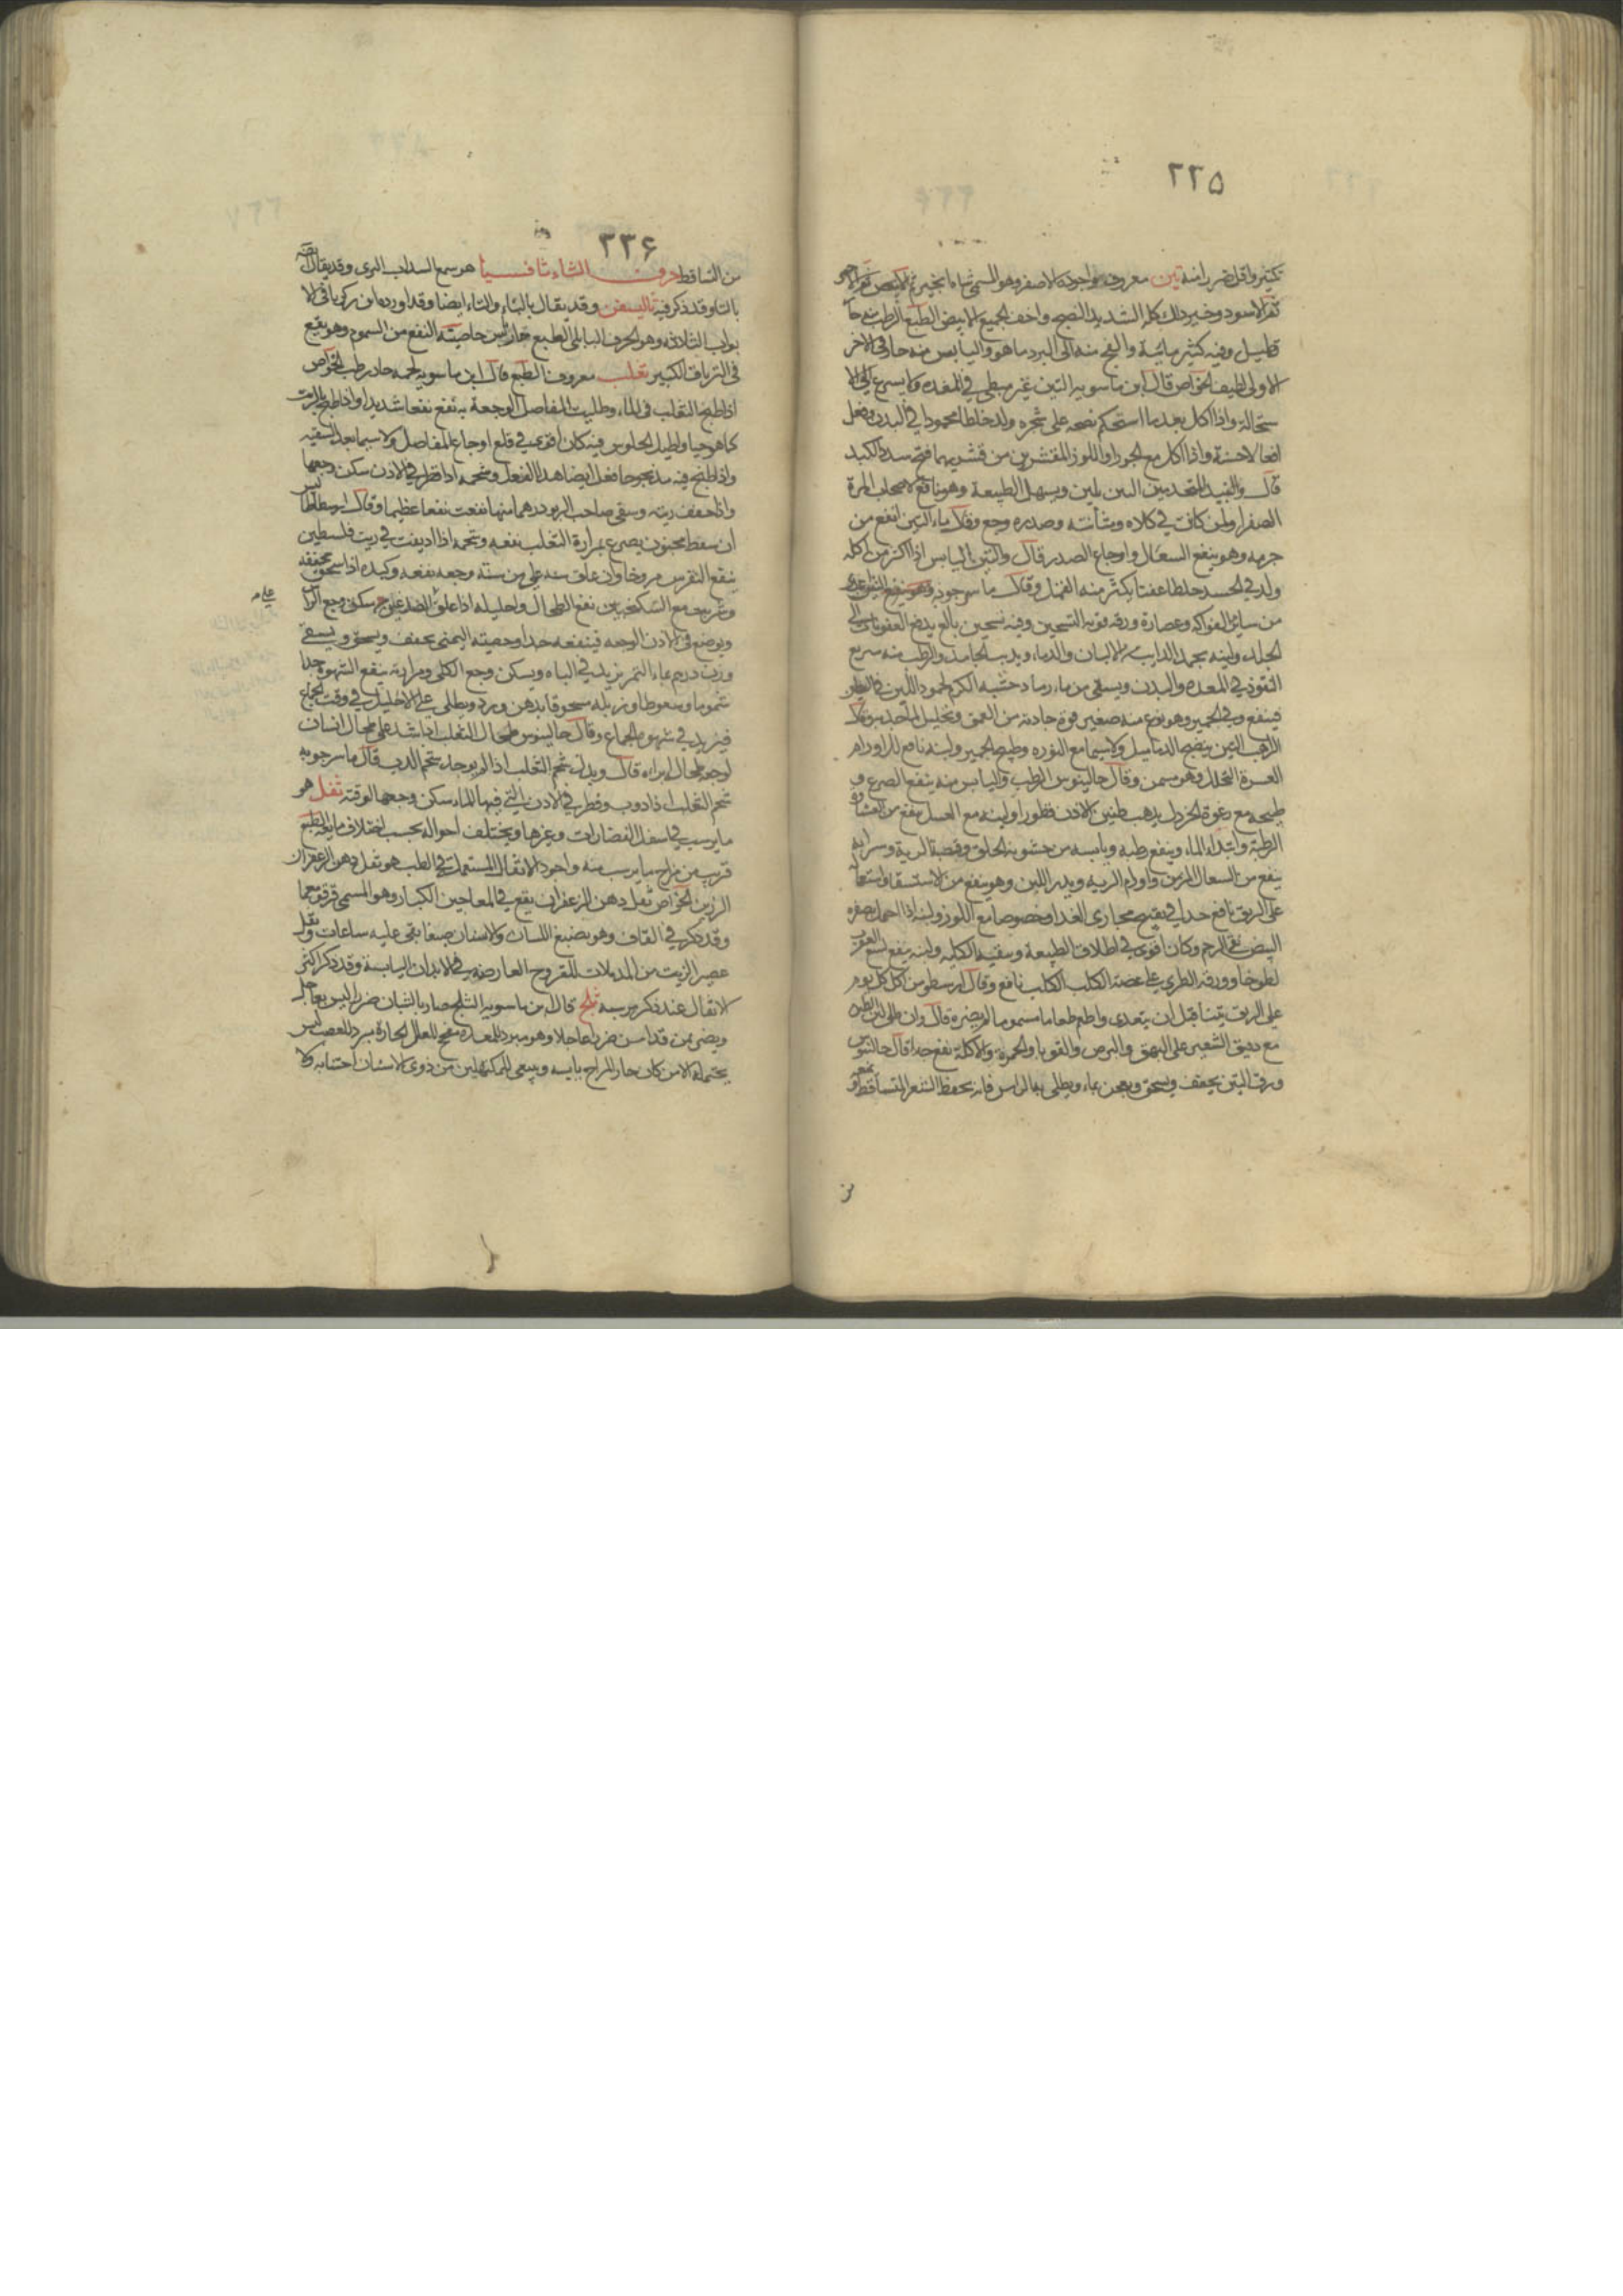 ٢٢٥
كثير واقل ضررا منه تين معروف واجوده الاصفر وهو المسمى
ثم الاسود وخير ذلك كله الشديد النضج واخف الجميع الابيض الطبع الرطب منه حار
قليل وفيه كثير مائية والفج منه الى البرد ما هو واليابس منه حار في الاخر
الاولى لطيف الخواص قال ابن ماسويه التين غير مبطى في المعده
ستحالة واذا اكل بعد ما استحكم نضجه على شجره ولد خلطا محمودا في البدن وفعل
افعالا حسنة واذا اكل مع الجوز او اللوز المقشرين من قشريهما فتح سدد الكبد
قال والنبيذ المتخذ من التين يلين ويسهل الطبيعة وهو نافع لاصحاب المرة
الصفرا ولمن كانت في كلاه ومثانته وصدره وجع وقال ماء التين انفع من
جرمه وهو ينفع السعال واوجاع الصدر قال والتين اليابس اذا اكثر من اكله
ولد في الجسد خلطا عفنا يكثر منه القمل وقال ماسرجويه وهو
من سائر الفواكه وعصارة ورقه قوية التسخين وفيه تسخين بالغ يدفع العفونات الى
الجلد ولبنه يجمد الذايب من الالبان والدماء ويذيب الجامد والرطب منه سريع
النفوذ في المعده والبدن ويسقى من ماء رماد خشبه الكرم لجمود اللبن في البطن
فينفع وفي الجميز وهو نوع منه صغير قوة جاذبة من العمق وتحليل
التين ينضج الدماميل ولا سيما مع البوره وطبيخ الجميز ولبنه نافع للاورام
العسرة التحلل وهو مسمن وقال جالينوس الرطب واليابس منه ينفع الصرع و
طبيخه مع رغوة الخردل يذهب طنين الاذن قطورا ولبنه مع العسل ينفع من الغشاوة
الرطبة وابتداء الماء وينفع رطبه ويابسه من خشونة الحلق وقصبة الرية وشرابه
ينفع من السعال المزمن واورام الرية ويدر اللبن وهو ينفع من الاستسقا واستعماله
على الريق نافع جدا في تفتيح مجارى الغذا وخصوصا مع اللوز ولبنه اذا احتمل بصفرة
البيض نقى الرحم وكان اقوى في اطلاق الطبيعة وسقيه الكليه ولبنه ينفع لسع العقرب
لطوخا وورقه الطرى على عضة الكلب الكلب نافع وقال ارسطوس من اكل كل يوم
على الريق تينا قبل ان يتغدى واطعم طعاما مسموما لم يضره قال وان طلى لبن
مع دقيق الشعير على البهق والبرص والقوبا والحمرة والاكلة نفع جدا قال جالينوس
ورق التين يجفف ويسحق ويعجن بماء ويطلى به الراس فانه يحفظ الشعر المتساقط
من
٢٣۶
من التساقط حرف الثاء ثافسيا هو صمغ السذاب البرى وقد يقال
بالتاء وقد ذكر فيه ثاليسفر وقد يقال بالباء والتاء ايضا وقد اورده ابن زكريا في الا
بواب الثلاثة وهو الحرف البابلى الطبع حار يابس خاصيته النفع من السموم وهو يقع
في الترياق الكبير ثعلب معروف الطبع قال ابن ماسويه لحمه حار رطب الخواص
اذا طبخ الثعلب في الماء وطليت المفاصل الوجعة به نفع نفعا شديدا واذا طبخ بالزيت
كما هو حيا واطيل الجلوس فيه كان اقوى في قلع اوجاع المفاصل ولا سيما بعد التنقيه
واذا طبخ فيه مذبوحا فعل ايضا هذا الفعل وشحمه اذا قطر في الاذن سكن وجعها
واذا جفف ريته وسقى صاحب الربو درهما منها نفعت نفعا عظيما وقال ارسطاطاليس
ان سعط مجنون يصرع بمرارة الثعلب نفعه وشحمه اذا اديفت في زيت فلسطين
ينفع النقرس مروخا وان علق سنه على من سنه وجعه نفعه وكبده اذا سحق
وشربت مع السكنجبين نفع الطحال واحليله اذا علق سكن وجع الراس
عليه
ويوضع في الاذن الوجعه فينفعه جدا وخصيته اليمنى يجفف ويسحق ويسقى
وزن درهم بماء التمر يزيد في الباه ويسكن وجع الكلى ومرارته ينفع الشهوة جدا
شموما وسعوطا وزبله مسحوقا بدهن ورد ويطلى على الاحليل في وقت الجماع
فيزيد في شهوة الجماع وقال جالينوس طحال الثعلب اذا شد على طحال انسان
لوجع طحال ابراه قال وبدل شحم الثعلب اذا لم يوجد شحم الدب قال ماسرجويه
شحم الثعلب اذا ذوب وقطر في الاذن التي فيها الماء سكن وجعها لوقته ثفل هو
ما يرسب في اسفل العصارات وغيرها ويختلف احواله بحسب اختلاف مايعه الطبع
قريب من مزاج ما يرسب منه واجود الاثفال المستعملة في الطب هو ثفل دهن الزعفران
الرزين الخواص ثفل دهن الزعفران يقع في المعاجين الكبار وهو المسمى قرقومغما
وقد ذكر في القاف وهو يصبغ اللسان والاسنان صبغا يبقى عليه ساعات وثفل
عصير الزيت من المدملات للقروح العارضة في الابدان اليابسة وقد ذكر اكثر
الاثفال عند ذكر ثلج قال ابن ماسويه الثلج ضار بالشبان ضررا ليس بعاجل
ويضر بمن قد اسن ضررا عاجلا وهو مبرد للمعدة نفع للعلل الحارة مبرد للعصب ليس
يحتمله الا من كان حار المزاج يابسه وينبغي للمكتهلين من ذوى الاسنان اجتنابه ولا